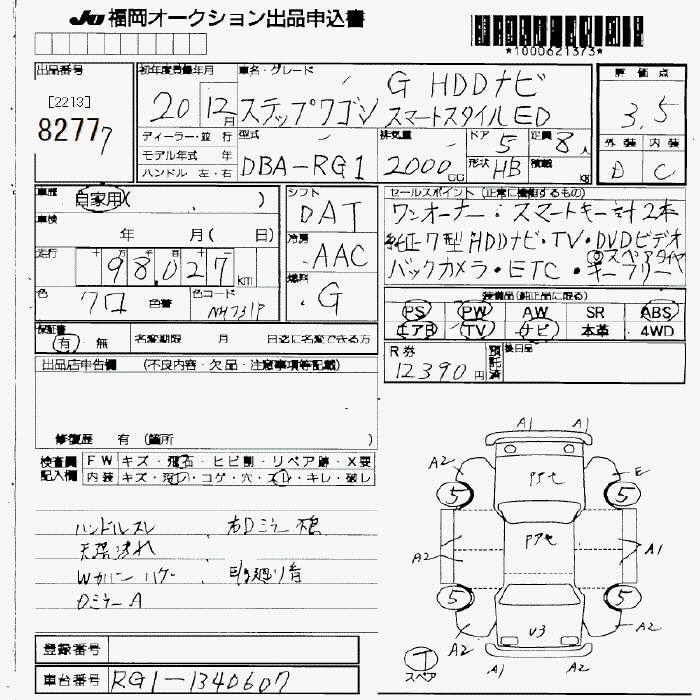 JU 福岡オークション出品申込書
*1000621373*
出品番号
[2213]
8277 7
初年度登録年月
20 12月
車名・グレード
G HDDナビ
ステップワゴン スマートスタイルED
評価点
3,5
外装 内装
D C
ディーラー・並行
モデル年式 年
ハンドル 左・右
型式
DBA-RG1
排気量
2000cc
ドア 5
形状 HB
定員 8人
積載 kg
車歴 自家用( )
車検 年 月( 日)
走行 十 万 千 百 十
98,027km
色 クロ 色替
色コード NH731P
シフト
DAT
冷房
AAC
燃料
G
セールスポイント(正常に機能するもの)
ワンオーナー・スマートキー計2本
純正7型HDDナビ・TV・DVDビデオ
スペアタイヤ
バックカメラ・ETC・キーフリー
装備品(純正品に限る)
PS PW AW SR ABS
エアB TV ナビ 本革 4WD
保証書
有・無
名変期限 月 日迄に名変できる方
R券
12390円
預託済
後日品
出品店申告欄 (不良内容・欠品・注意事項等記載)
修復歴 有(箇所 )
検査員記入欄
FW キズ・飛石・ヒビ割・リペア跡・X要
内装 キズ・汚レ・コゲ・穴・スレ・キレ・破レ
ハンドルスレ 、右Dミラー
天張汚れ
Wカバーハゲ
DミラーA
A1 A1
A2 E
5 5
A2 A1
5 5
U3
A2 A2
A1 A2
T
スペア
登録番号
車台番号 RG1-1340607